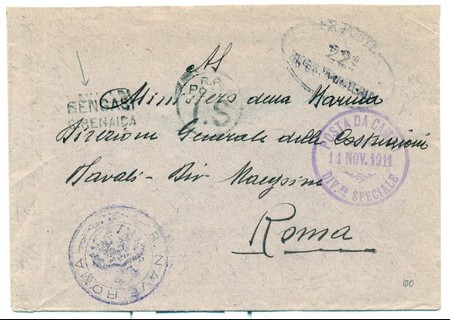 R. POSTE
22ª
Al
BENGASI
CIRENAICA
R.R.
PO
T.S
Ministero della Marina
Direzione Generale delle Costruzioni
Navali - Div
Roma
POSTA DA CAMPO
11 NOV. 1911
DIV.NE SPECIALE
R. NAVE ROMA
100